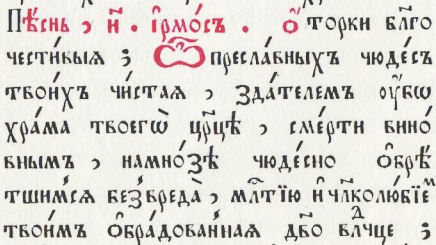 Пѣ́снь , н҃ . і҆рмо́съ . О҆́ торки бл҃го
че́стивыѧ ; Ѽ пресла́вныхъ чюде́съ
твои́хъ чи́стаѧ , Зда́телемъ ᲂу҆́бѡ
хра́ма твоегѡ̀ цр҃цѣ , сме́рти вино́
внымъ , намно́зѣ чюде́сно ѡ҆брѣ́
тши́мсѧ без̾вреда̀ , мл҃тїю и҆ чл҃колю́бїемъ
твои́мъ ѡ҆бра́дова́ннаѧ дв҃о вⷣлчце ;